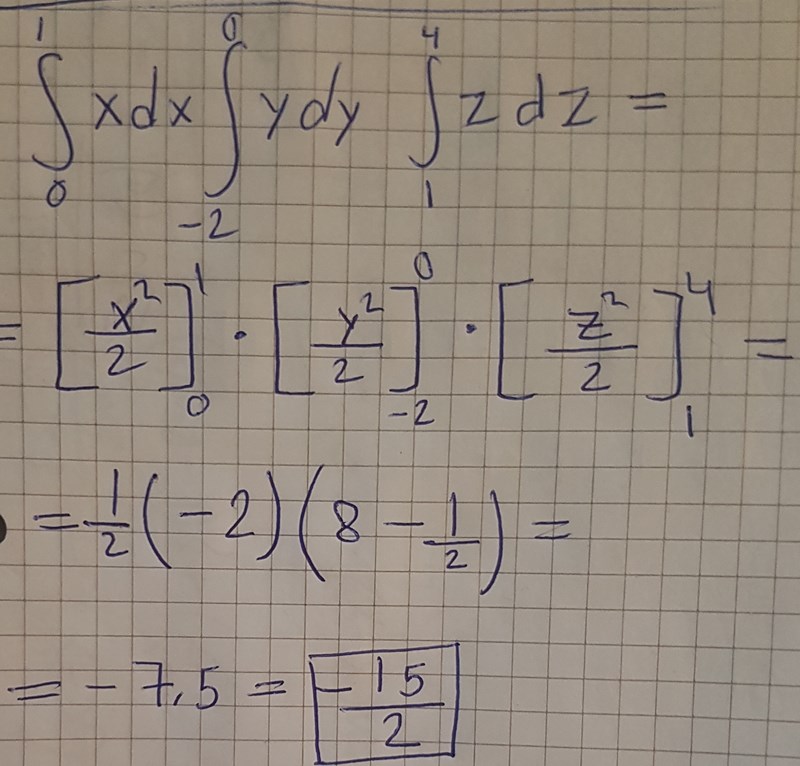 ∫₀¹ x dx ∫₋₂⁰ y dy ∫₁⁴ z dz =
= [x²/2]₀¹ · [y²/2]₋₂⁰ · [z²/2]₁⁴ =
= 1/2 (-2) (8 - 1/2) =
= -7.5 = -15/2